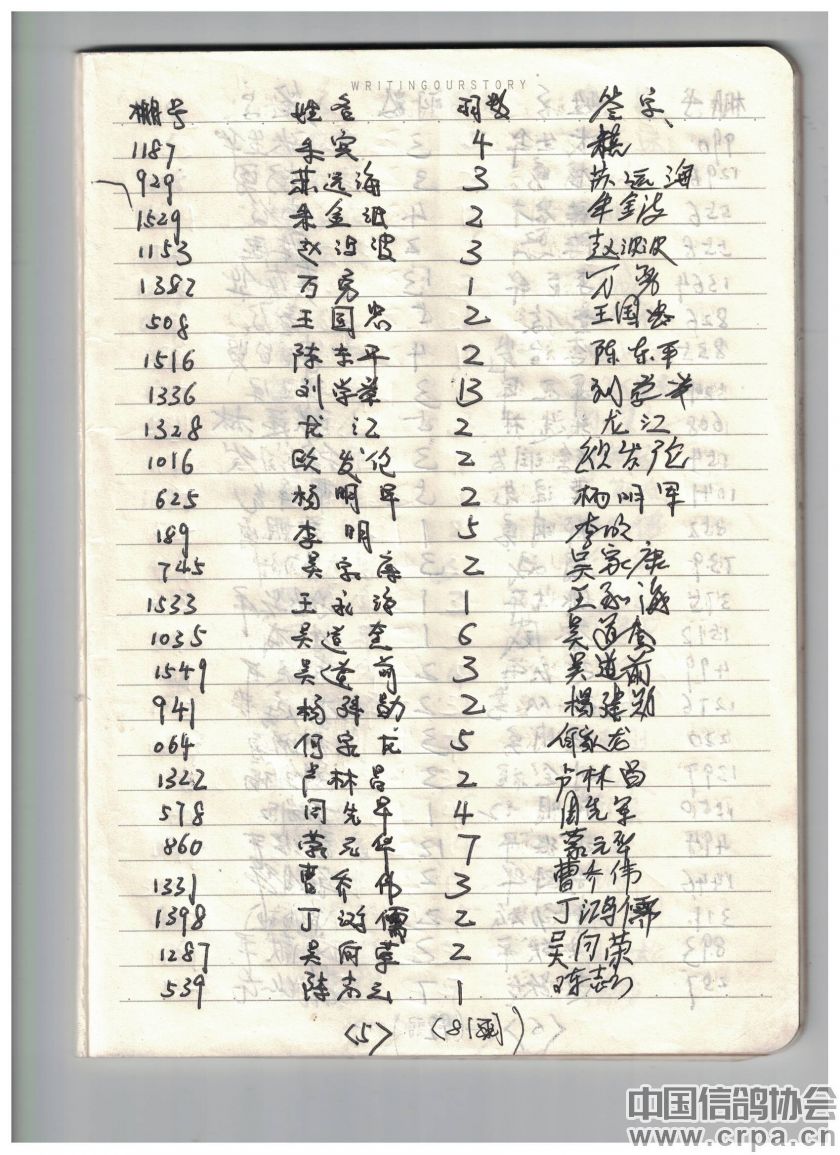 WRITINGOURSTORY
棚号 姓名 羽数 签字
1187 朱宾 4
929 苏远海 3 苏远海
1529 金波 2 金波
1153 赵波波 3 赵波波
1382 万勇 1 万勇
508 王国忠 2 王国忠
1516 陈东平 2 陈东平
1336 刘学举 13 刘学举
1328 龙江 2 龙江
1016 欧发伦 2 欧发伦
625 杨明军 2 杨明军
189 李明 5 李
745 吴家康 2 吴家康
1533 王永海 1 王永海
1035 吴道奎 6 吴道奎
1549 吴道前 3 吴道前
941 杨建勋 2 杨建勋
064 何家龙 5 何家龙
1322 卢林昌 2 卢林昌
578 周先军 4 周先军
860 蒙元华 7 蒙元华
1331 曹乔伟 3 曹乔伟
1398 丁鸿儒 2 丁鸿儒
1287 吴向荣 2 吴向荣
539 陈志 1 陈志
<5> (81羽)
中国信鸽协会
www.crpa.cn